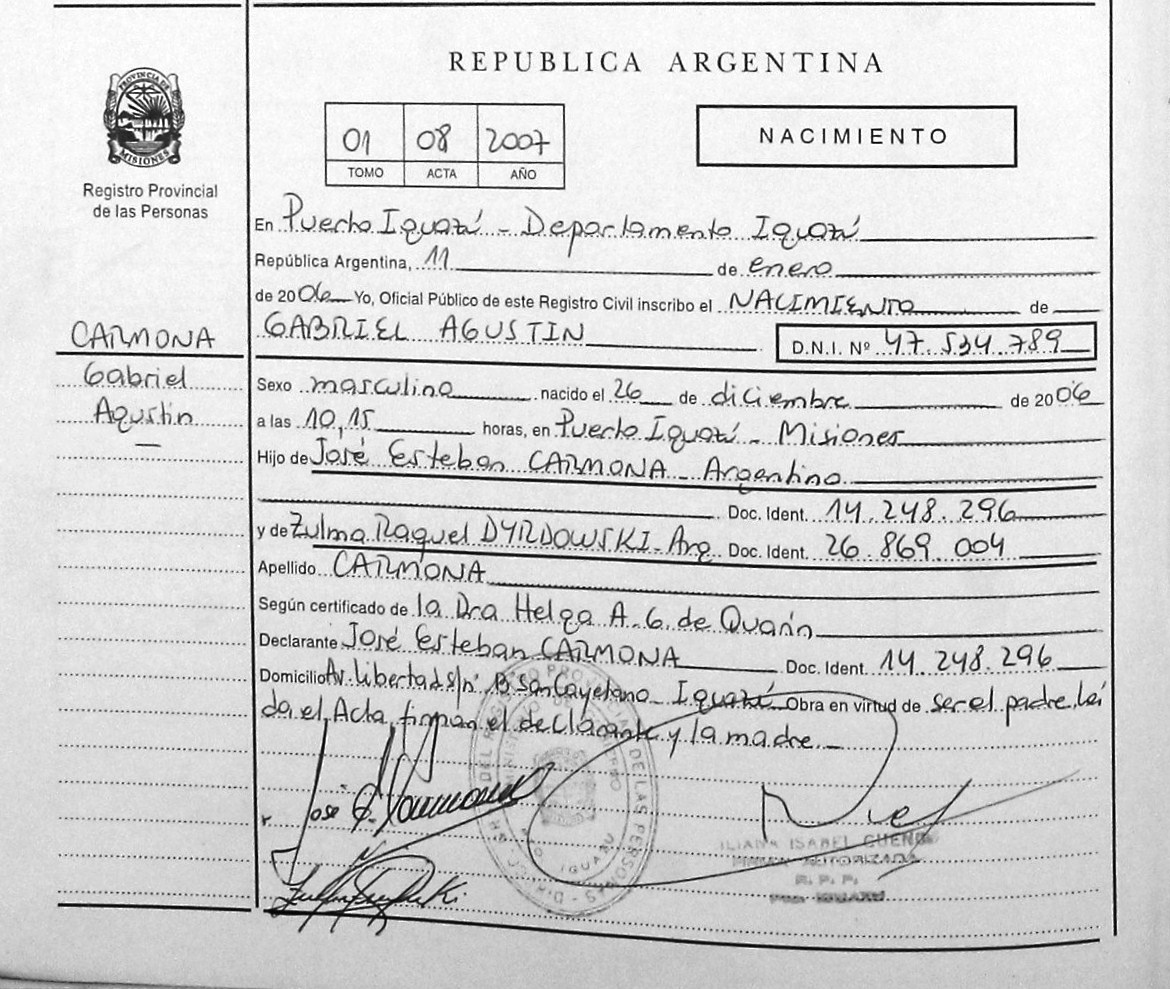 PROVINCIA DE
MISIONES
Registro Provincial
de las Personas
CARMONA
Gabriel
Agustin
—
REPUBLICA ARGENTINA
01 08 2007
TOMO ACTA AÑO
NACIMIENTO
En Puerto Iguazú - Departamento Iguazú
República Argentina, 11 de enero
de 2006 Yo, Oficial Público de este Registro Civil inscribo el NACIMIENTO de
GABRIEL AGUSTIN D.N.I. Nº 47.534.789
Sexo masculino nacido el 26 de diciembre de 2006
a las 10,15 horas, en Puerto Iguazú - Misiones
Hijo de José Esteban CARMONA - Argentino
Doc. Ident. 14.248.296
y de Zulma Raquel DYRDOWSKI - Arg Doc. Ident. 26 869 004
Apellido CARMONA
Según certificado de la Dra Helga A. G. de Quarin
Declarante José Esteban CARMONA Doc. Ident. 14.248.296
Domicilio Av. Libertad s/nº Bº San Cayetano Iguazú Obra en virtud de ser el padre. Leí
da el Acta, firman el declarante y la madre
José E. Carmona
ILIANA ISABEL CUENO
FIRMA AUTORIZADA
R. P. P.
Pto. IGUAZU